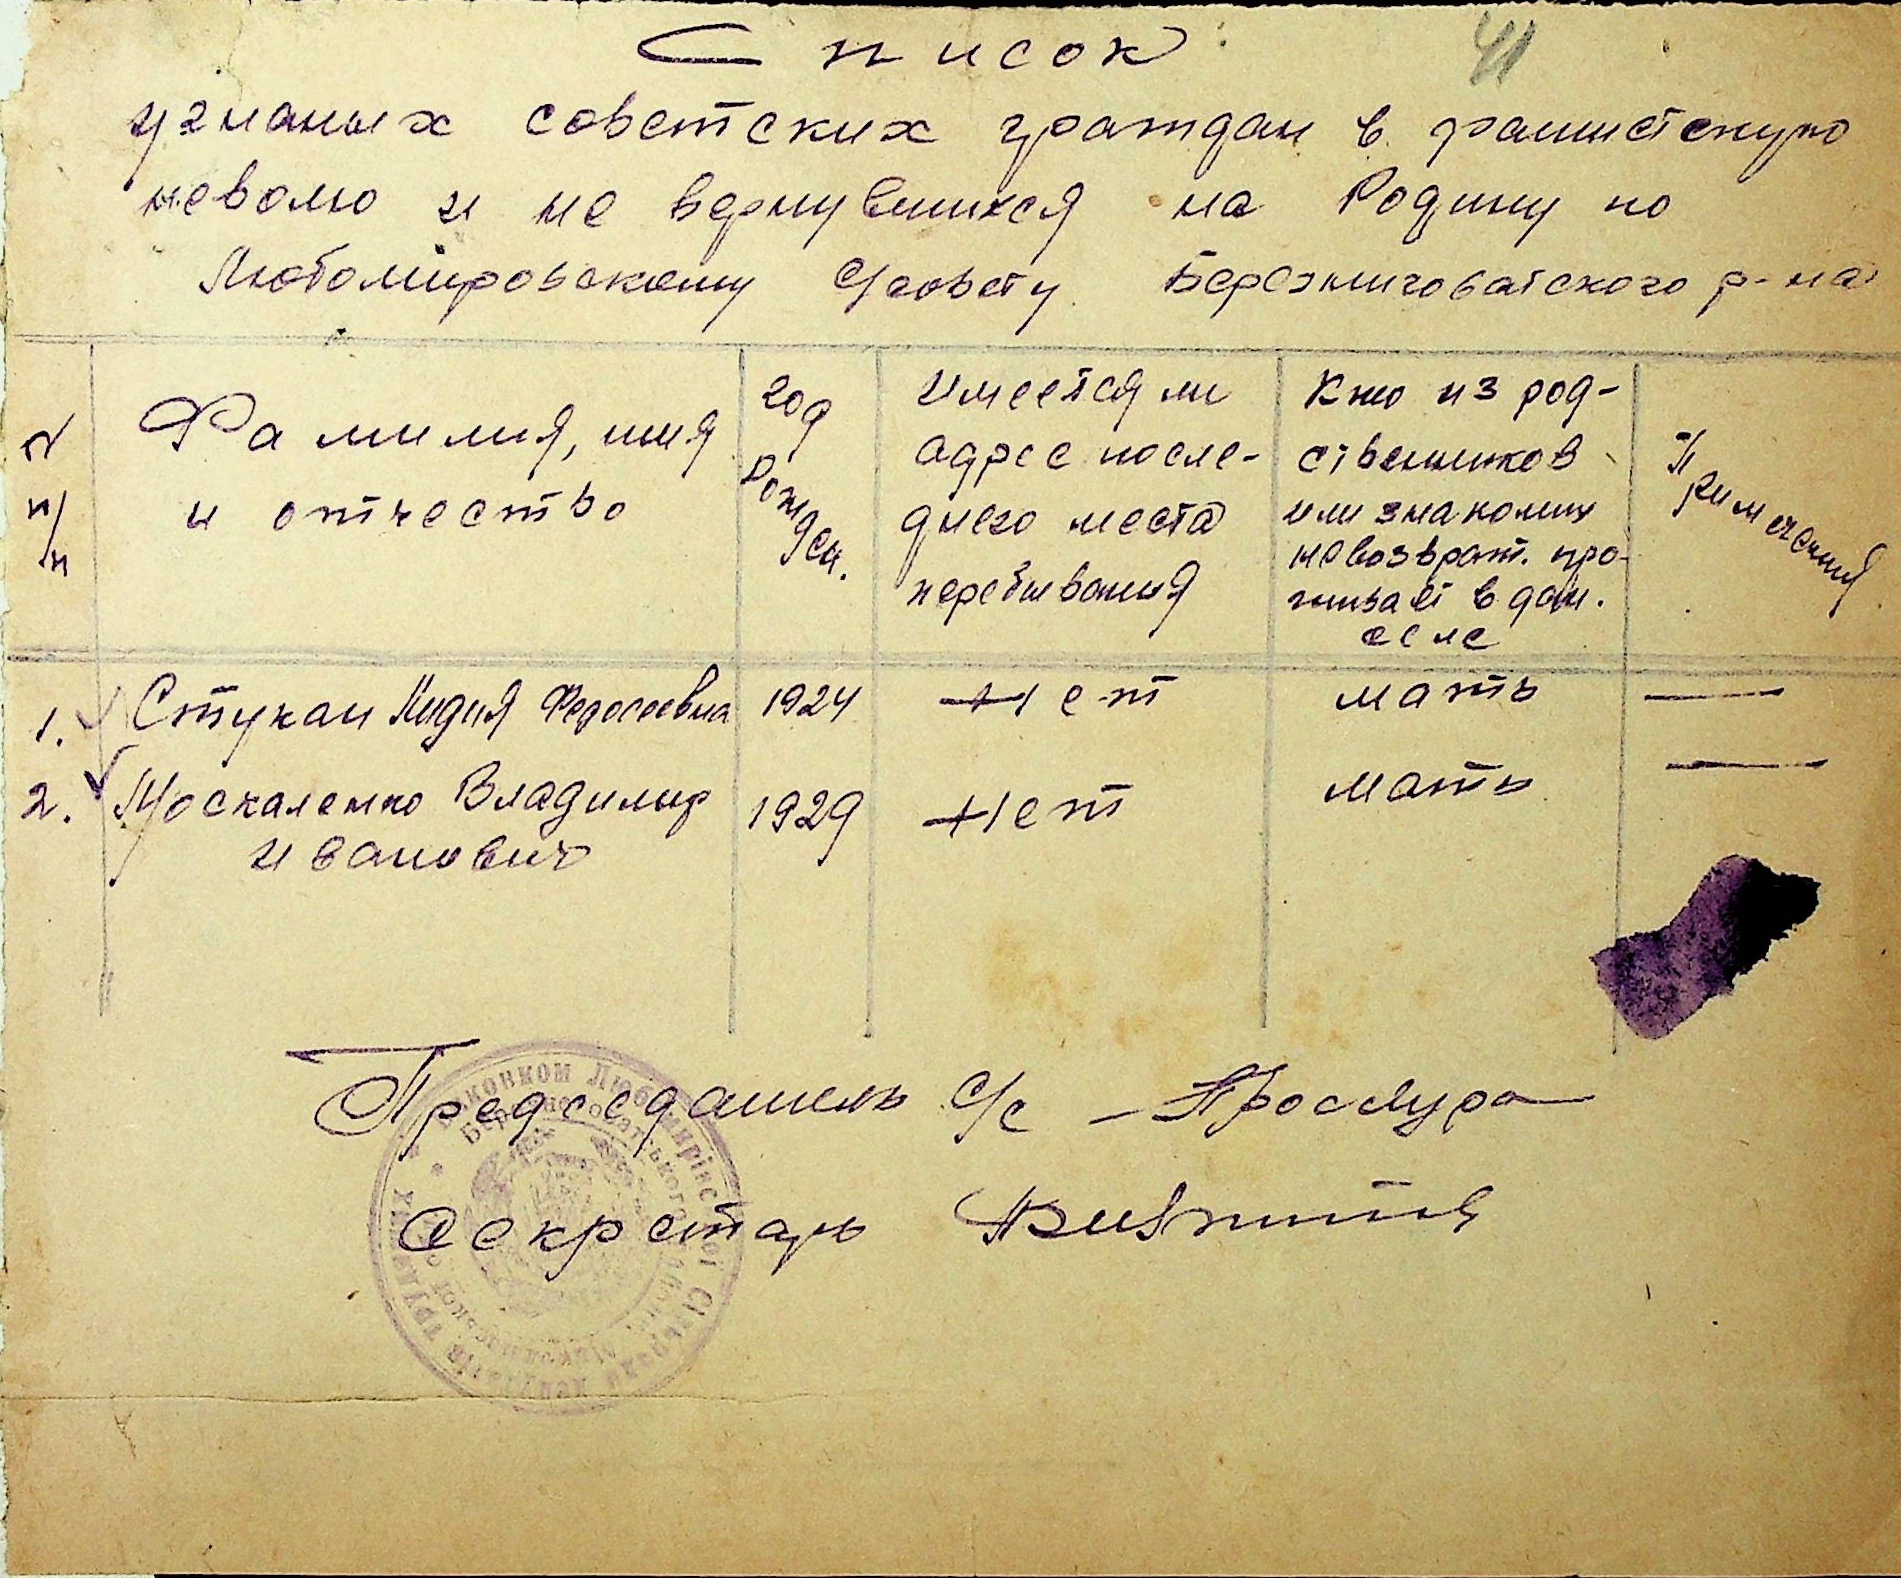 41
Список
угнаных советских граждан в фашистскую
неволю и не вернувшихся на Родину по
Любомировскому с/совету Березниговатского р-на
N п/п
Фамилия, имя
и отчество
год
рожден.
имеется ли
адрес после-
днего места
перебывания
Кто из род-
ственников
или знакомых
невозврат. про-
живает в дан.
селе
Примечения
1. Стукан Лидия Федосеевна 1924 Нет мать —
2. Москаленко Владимир 1929 Нет мать —
иванович
Председатель с/с - Проскура
Секретарь
Виконком Любомирівської Сільради депутатів труд
Березнеговатського